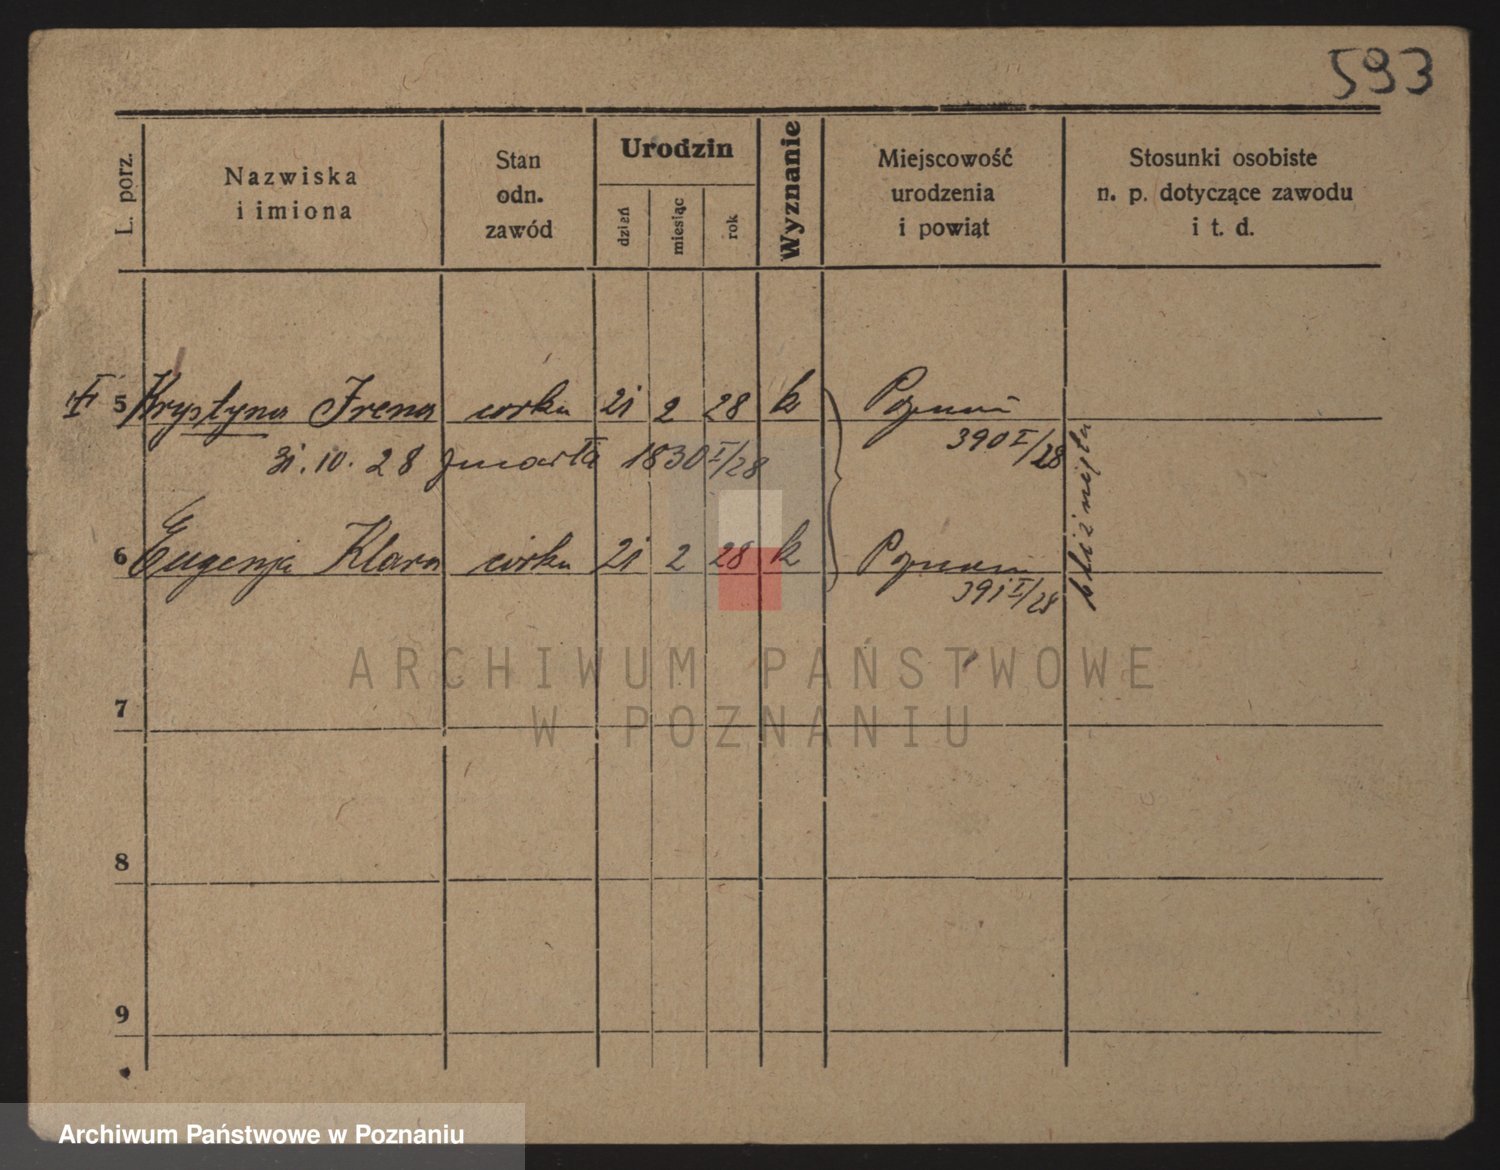 593
L. porz.
Nazwiska
i imiona
Stan
odn.
zawód
Urodzin
dzień
miesiąc
rok
Wyznanie
Miejscowość
urodzenia
i powiąt
Stosunki osobiste
n. p. dotyczące zawodu
i t. d.
5 Krystyna Irena córka 21 2 28 k Poznań
390 I/28
31.10.28 zmarła 1830 I/28
6 Eugenja Klara córka 21 2 28 k Poznań
391 I/28
bliźnięta
7
8
9
ARCHIWUM PAŃSTWOWE
W POZNANIU
Archiwum Państwowe w Poznaniu